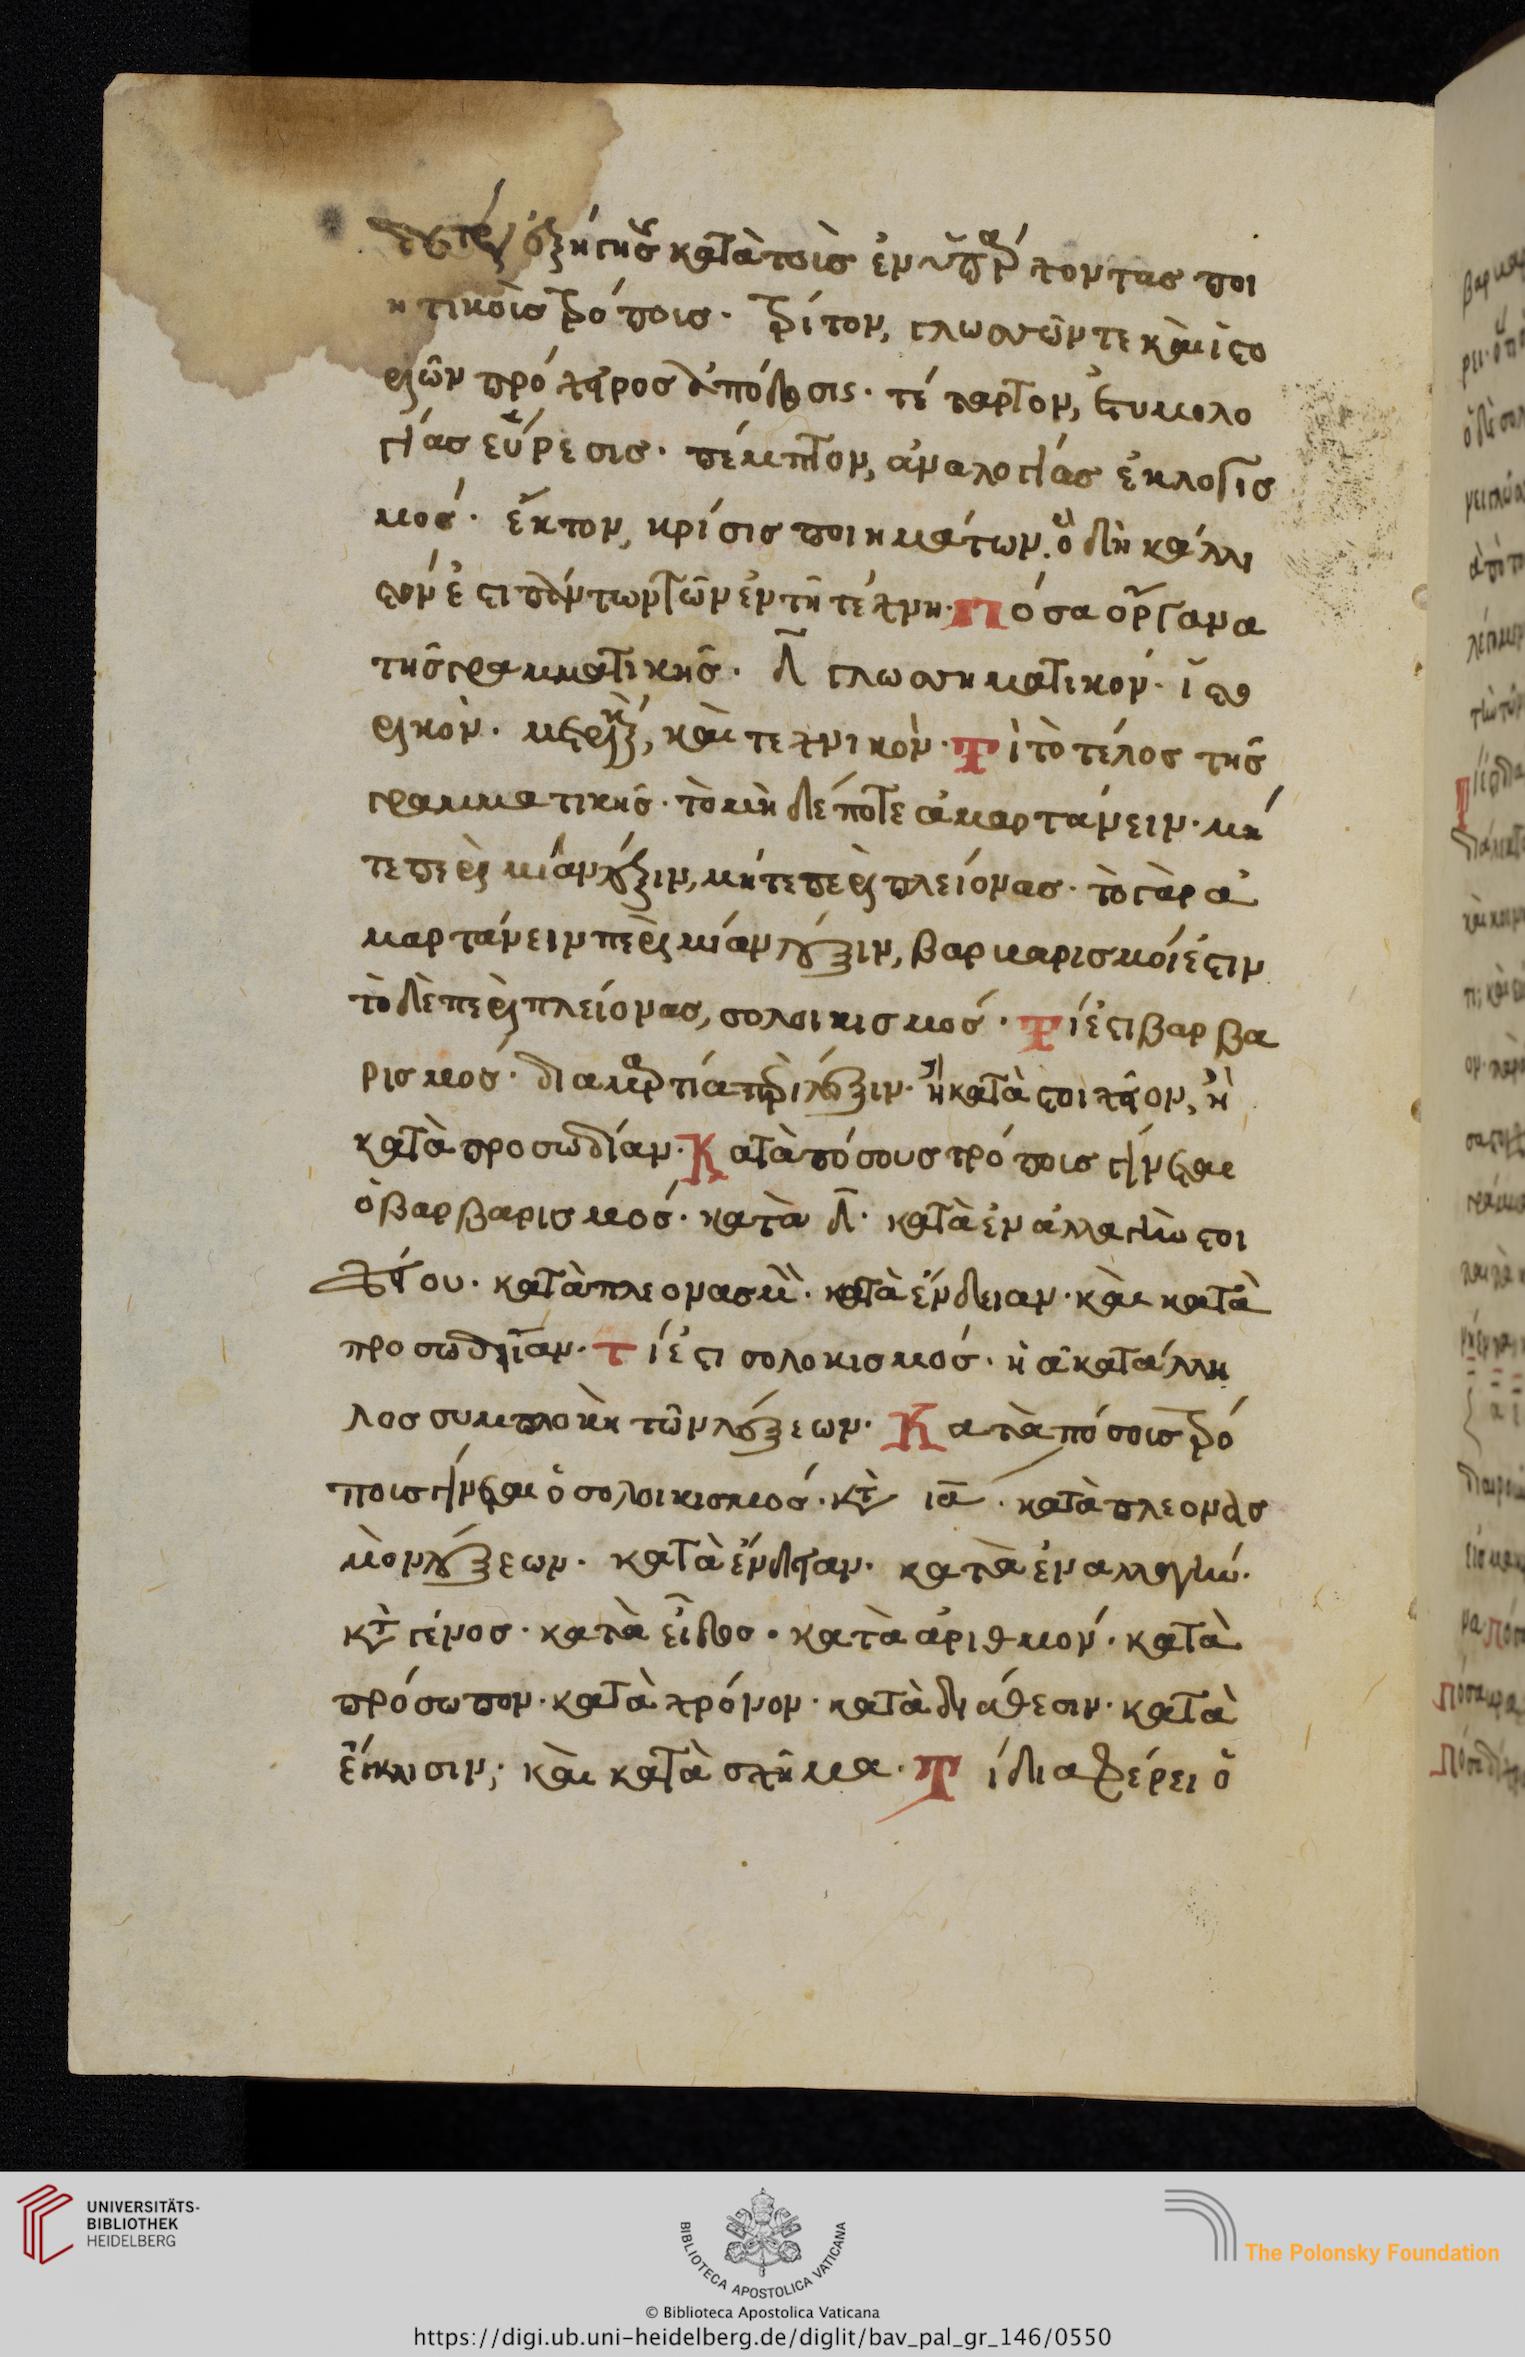 δεύτερον ἐξήγησις κατὰ τοὺς ἐνυπάρχοντας ποι
ητικοὺς τρόπους· τρίτον, γλωσσῶν τε καὶ ἱστο
ριῶν πρόχειρος ἀπόδοσις· τέταρτον, ἐτυμολο
γίας εὕρεσις· πέμπτον, ἀναλογίας ἐκλογισ
μός· ἕκτον, κρίσις ποιημάτων, ὃ δὴ κάλλι
στόν ἐστι πάντων τῶν ἐν τῇ τέχνῃ· Πόσα ὄργανα
τῆς γραμματικῆς· δ̄ γλωσσηματικόν· ἱστο
ρικὸν· μετρικόν, καὶ τεχνικὸν· Τί τὸ τέλος τῆς
γραμματικῆς· τὸ μηδέποτε ἁμαρτάνειν· μή
τε περὶ μίαν λέξιν, μήτε περὶ πλείονας· τὸ γὰρ ἁ
μαρτάνειν περὶ μίαν λέξιν, βαρβαρισμός ἐστιν
τὸ δὲ περὶ πλείονας, σολοικισμός· Τί ἐστι βαρβα
ρισμός· διαμαρτία περὶ λέξιν· ἢ κατὰ στοιχεῖον, ἢ
κατὰ προσωδίαν· Κατὰ πόσους τρόπους γίνεται
ὁ βαρβαρισμός· κατὰ δ̄· κατὰ ἐναλλαγὴν στοι
χείου· κατὰ πλεονασμὸν· κατὰ ἔνδειαν· καὶ κατὰ
προσωδίαν· τί ἐστι σολοκισμός· ἡ ἀκατάλλη
λος συμπλοκὴ τῶν λέξεων· Κατὰ πόσους τρό
πους γίνεται ὁ σολοικισμός· κατὰ ια· κατὰ πλεονασ
μὸν λέξεων· κατὰ ἔνδειαν· κατὰ ἐναλλαγήν·
κατὰ γένος· κατὰ εἶδος· κατὰ ἀριθμόν· κατὰ
πρόσωπον· κατὰ χρόνον· κατὰ διάθεσιν· κατὰ
ἔγκλισιν· καὶ κατὰ σχῆμα· Τί διαφέρει ὁ
UNIVERSITÄTS-
BIBLIOTHEK
HEIDELBERG
BIBLIOTECA APOSTOLICA VATICANA
The Polonsky Foundation
© Biblioteca Apostolica Vaticana
https://digi.ub.uni-heidelberg.de/diglit/bav_pal_gr_146/0550